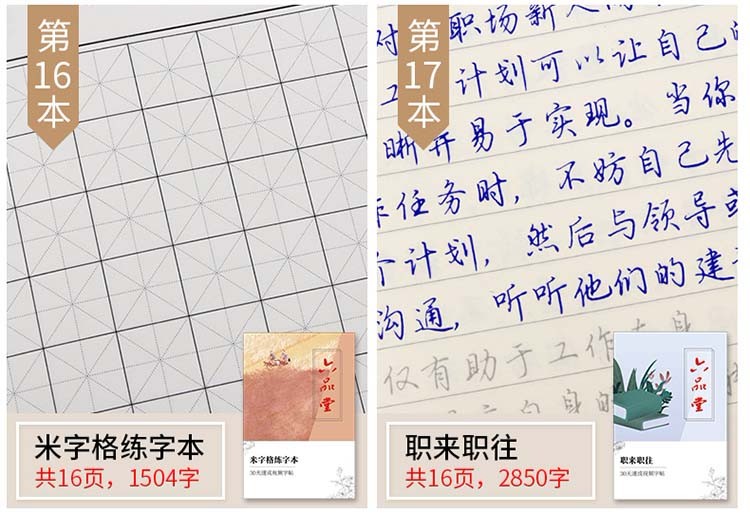 第
16
本
米字格练字本
共16页，1504字
六品堂
米字格练字本
30天速成视频字帖
第
17
本
对 职场新人
计划可以让自己的
晰并易于实现。当你
作任务时，不妨自己先
个计划，然后与领导或
沟通，听听他们的建
仅有助于工作
职来职往
共16页，2850字
六品堂
职来职往
30天速成视频字帖